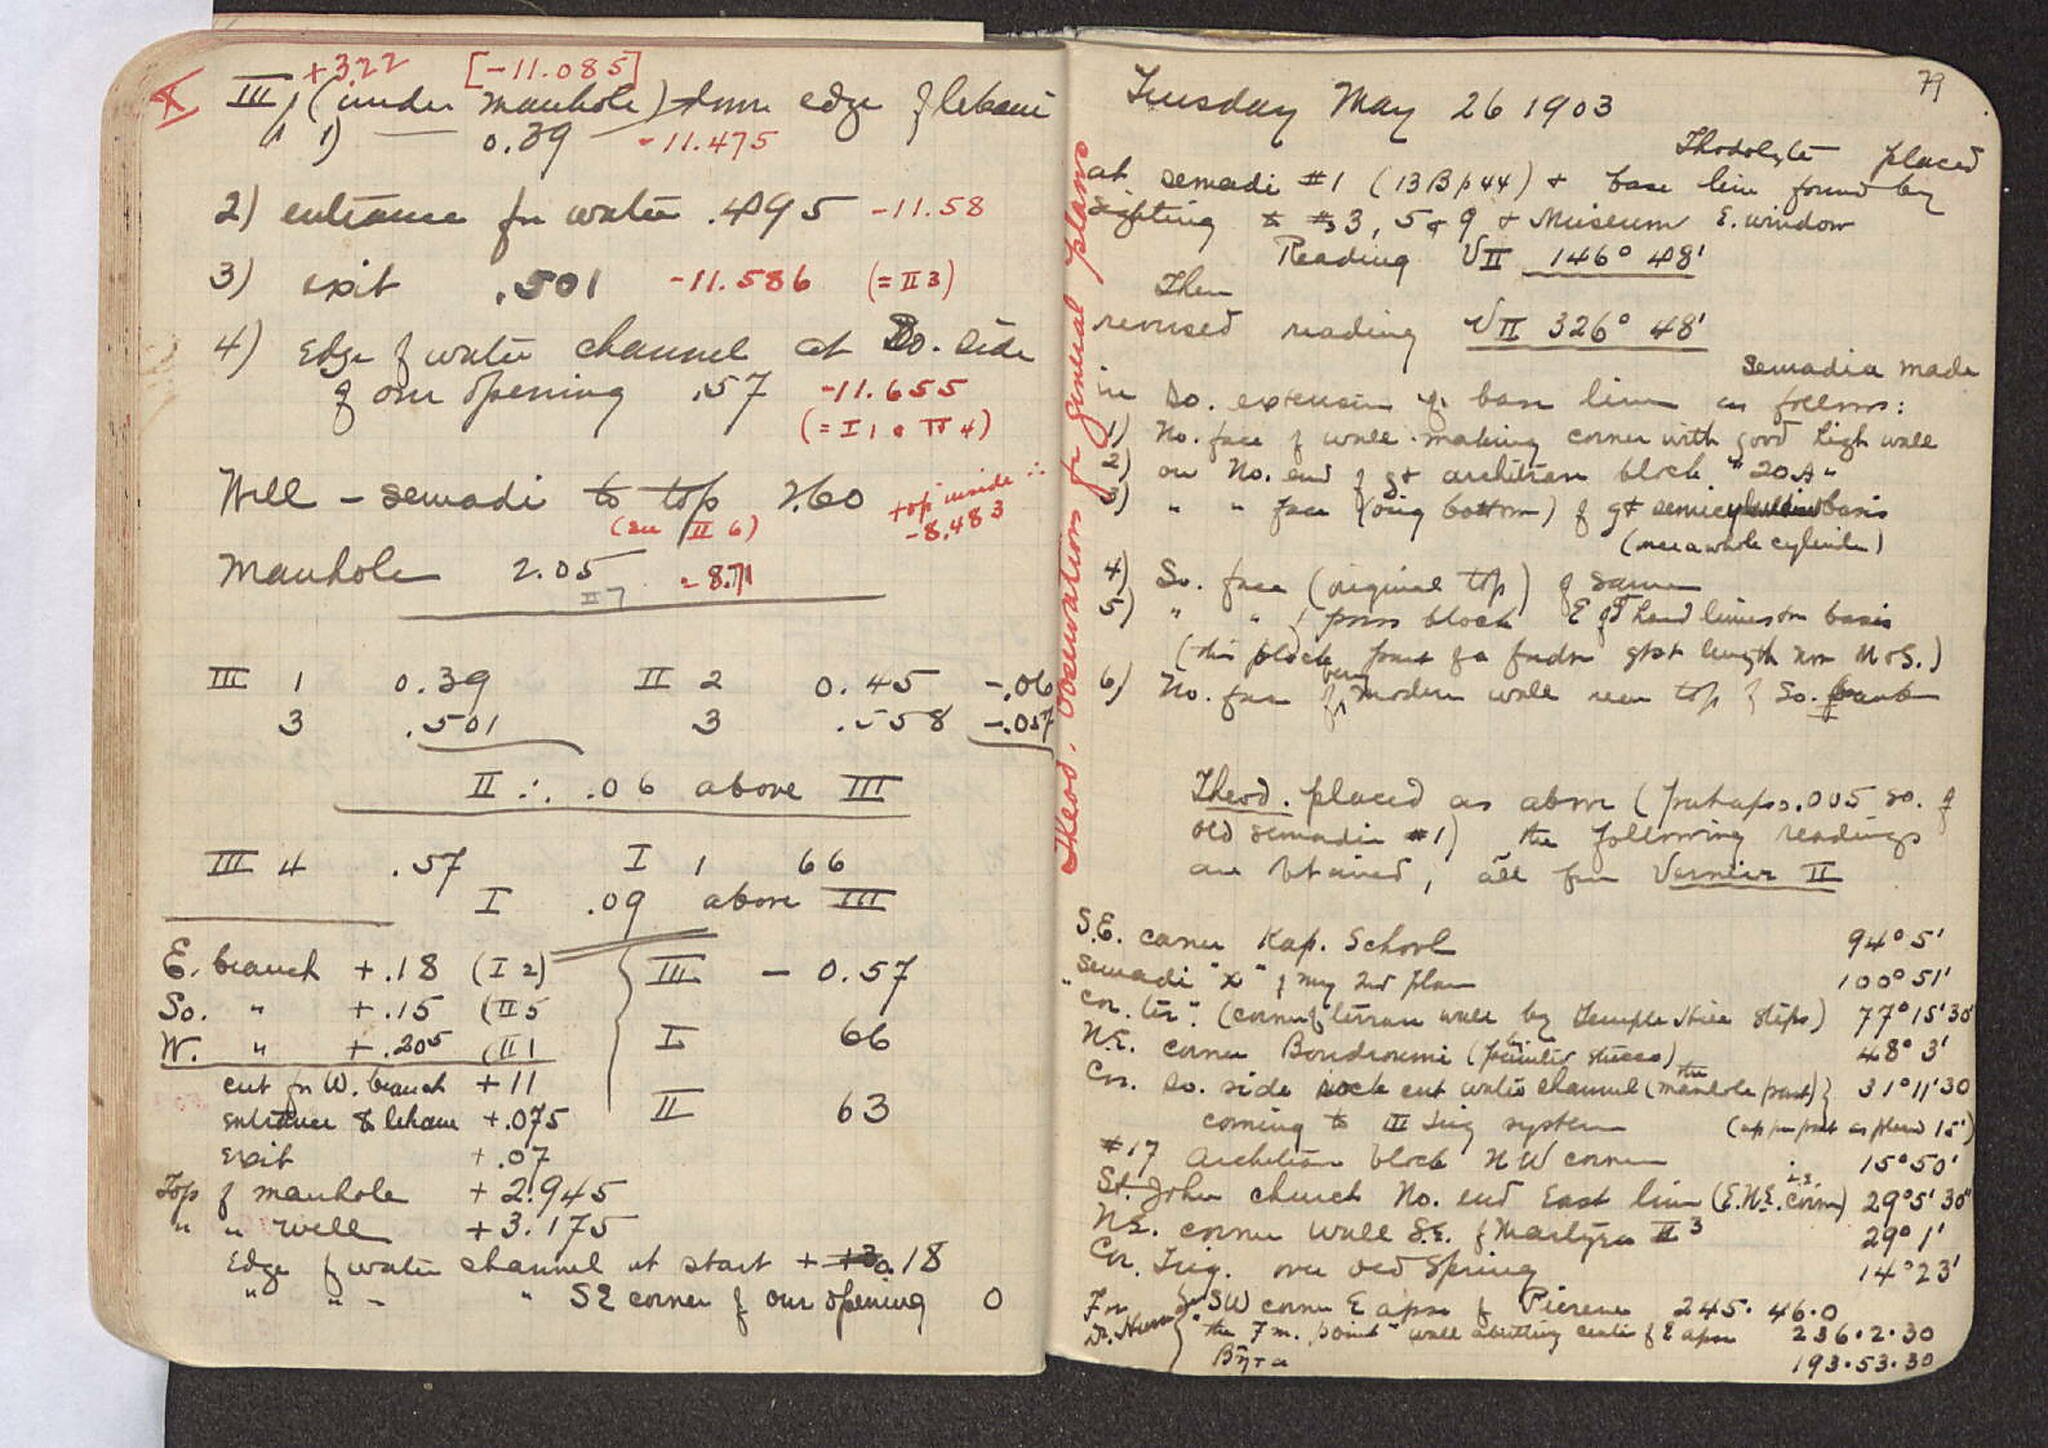 +322 [-11.085]
X III, (under manhole) from edge of lekane
1) — 0.39 — -11.475
2) entrance for water .495 -11.58
3) exit .501 -11.586 (= II 3)
4) Edge of water channel at So. side
of our opening .57 -11.655
(= I 1 . II 4)
Well - semadi to top 2.60 top inside ∴
(see II 6) -8.483
Manhole 2.05 = 8.71
II 7
III 1 0.39 II 2 0.45 -.06
3 .501 3 .558 -.057
II ∴ .06 above III
III 4 .57 I 1 66
I .09 above III
E. branch +.18 (I 2)
So. " +.15 (II 5
W. " +.205 (II 1
cut for W. branch +11
entrance to lekane +.075
exit +.07
Top of manhole +2.945
" " well +3.175
Edge of water channel at start + 0.18
" " - " SE corner of our opening 0
III - 0.57
I 66
II 63
79
Tuesday May 26 1903
Theodolyte placed
at semadi #1 (13 B p 44) + base line found by
sighting to #3, 5 + 9 + Museum E. window
Reading V II 146° 48'
Then
reversed reading V II 326° 48'
Semadia made
in So. extension of base line as follows:
1) No. face of wall making corner with good high wall
2) on No. end of gt architrave block "20A"
3) " " face (orig bottom) of gt semicylindrical basis
(once a whole cylinder)
4) So. face (original top) of same
5) " " , poros block E of hard limestone basis
(this block part of a fndn gtst length now N + S.)
6) No. face of modern wall near top of So. bank
Theod. observations for general plans
Theod. placed as above (perhaps 0.005 so. of
old semadi #1) the following readings
are obtained, all from Vernier II
S.E. corner Kap. School 94° 5'
" Semadi "X" of my 2nd plan 100° 51'
"Cor. ter". (corner of terrace wall by Temple Hill steps) 77° 15' 30"
N.E. corner Boudroumi (painted stucco) 48° 3'
Cor. So. side rock cut water channel (the manhole part) } 31° 11' 30
coming to III Trig system
#17 Architrave block N W corner 15° 50'
St. John church No. end East line (i.e. E.N.E. corner) 29° 5' 30"
N.E. corner wall S.E. of Martyra II 3 29° 1'
Cor. Trig. over old Spring 14° 23'
For SW corner E apse of Pirene 245. 46. 0
"the 7 m. point" wall abutting center of E apse 236. 2. 30
193. 53. 30